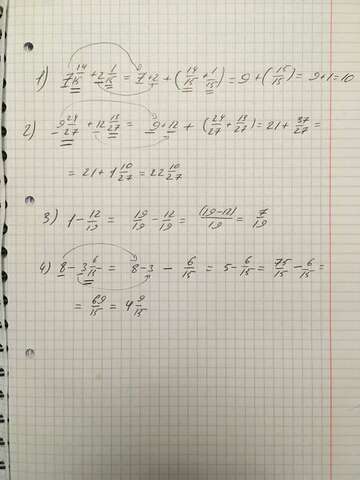 1) 7 14/15 + 2 1/15 = 7+2 + (14/15 + 1/15) = 9 + (15/15) = 9+1=10
2) 9 24/27 + 12 13/27 = 9+12 + (24/27 + 13/27) = 21 + 37/27 =
= 21 + 1 10/27 = 22 10/27
3) 1 - 12/19 = 19/19 - 12/19 = (19-12)/19 = 7/19
4) 8 - 3 6/15 = 8-3 - 6/15 = 5 - 6/15 = 75/15 - 6/15 =
= 69/15 = 4 9/15